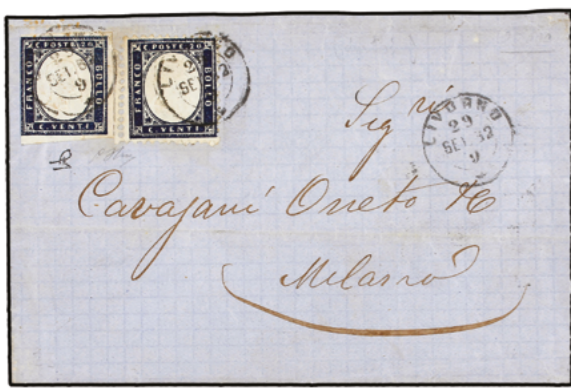 C. POSTE. 20
FRANCO
BOLLO
C. VENTI
C. POSTE. 20
FRANCO
BOLLO
C. VENTI
LIVORNO
29
SET. 62
9
Sig ri
LIVORNO
29
SET. 62
9
Cavajani Oneto & C
Milano